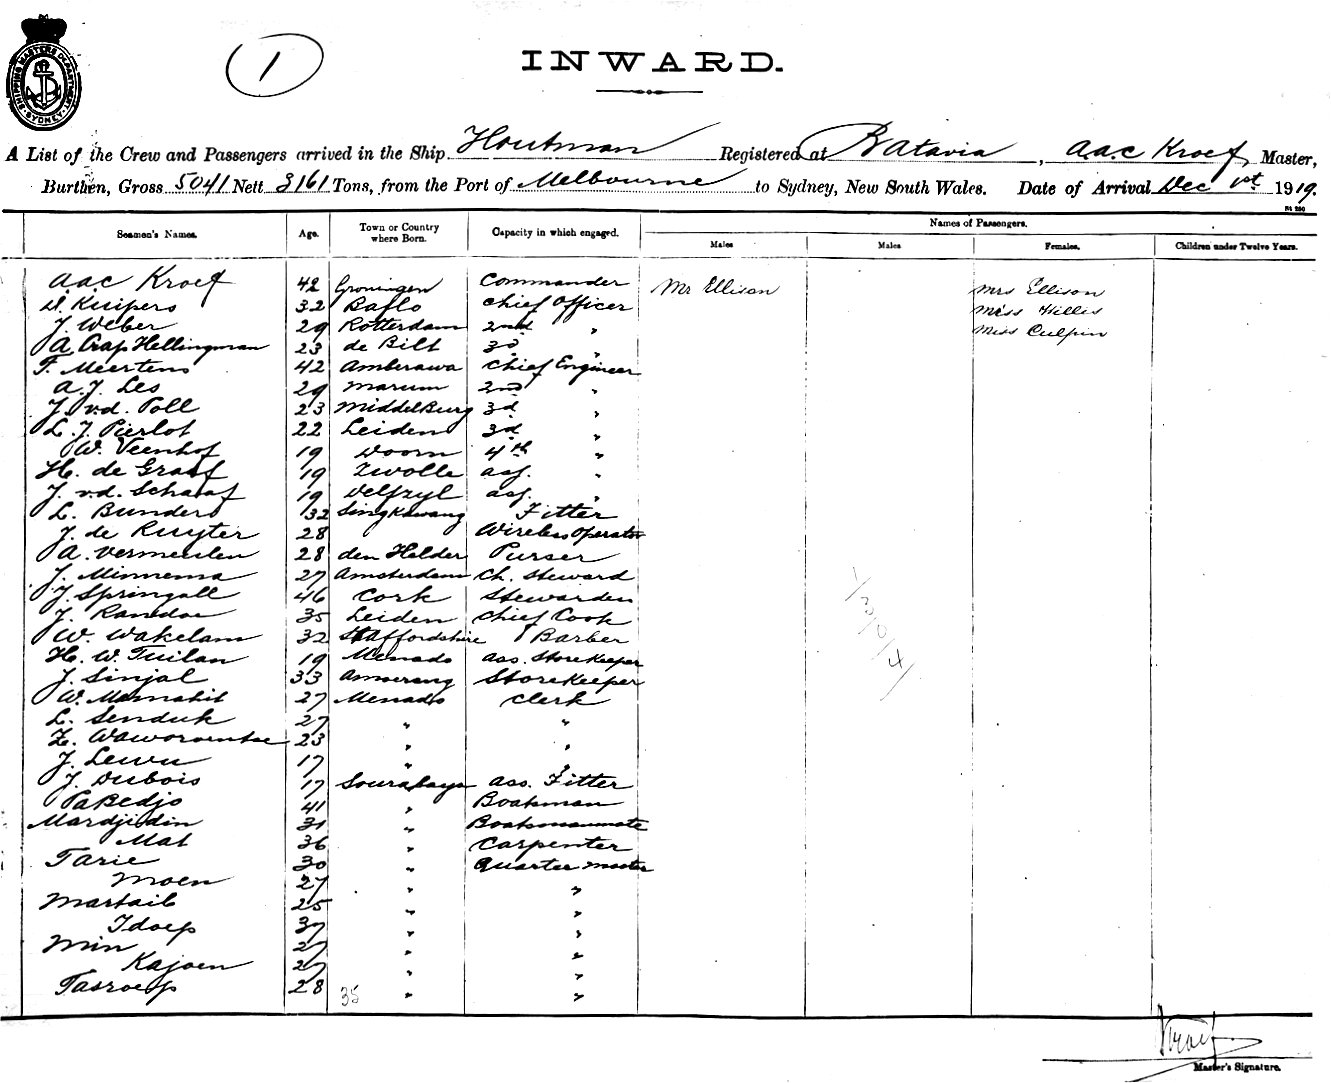 SHIPPING MASTERS DEPARTMENT
SYDNEY
1
INWARD.
A List of the Crew and Passengers arrived in the Ship Houtman Registered at Batavia, A.A.C Kroef, Master,
Burthen, Gross 5041 Nett 3161 Tons, from the Port of Melbourne to Sydney, New South Wales. Date of Arrival Dec 1st 1919.
Names of Passengers.
Seamen's Names. Age. Town or Country where Born. Capacity in which engaged. Males Males Females. Children under Twelve Years.
A.A.C Kroef 42 Groningen Commander Mr Ellison Mrs Ellison
D. Kuipers 32 Baflo Chief Officer Miss Willis
J. Weber 29 Rotterdam 2nd " Miss Culpin
A. Crap Hellingman 23 de Bilt 3d "
F. Meertens 42 Amberawa Chief Engineer
A.J. Les 29 Marum 2nd "
J. v.d. Poll 23 Middelburg 3d "
L. J. Pierlot 22 Leiden 3d "
W. Veenhof 19 Doorn 4th "
H. de Graaf 19 Zwolle ass. "
J. v.d. Schaaf 19 Delfzyl ass. "
L. Bunders 32 Singkawang Fitter
J. de Ruyter 28 Wireless Operator
A. Vermeulen 28 den Helder Purser
J. Minnema 27 Amsterdam Ch. Steward
J. Springall 46 Cork Stewardes
J. Ramdoe 35 Leiden Chief Cook
W. Wakelam 32 Staffordshire Barber
H. W. Tuilan 19 Menado Ass. Storekeeper
J. Sinjal 33 Amoerang Storekeeper
W. Mamahit 27 Menado Clerk
L. Senduk 27 " "
Z. Waworoentoe 23 " "
J. Lewu 17 " "
J. Dubois 17 Sourabaya Ass. Fitter
PaBedjo 41 " Boatsman
Mardjidin 31 " Boatsmanmate
Mat 36 " Carpenter
Tarie 30 " Quarter master
Moen 27 " "
Martaib 25 " "
Idoep 37 " "
Min 27 " "
Kajoen 27 " "
Tasroep 28 " "
35
1/30/4/
Kroef
Master's Signature.